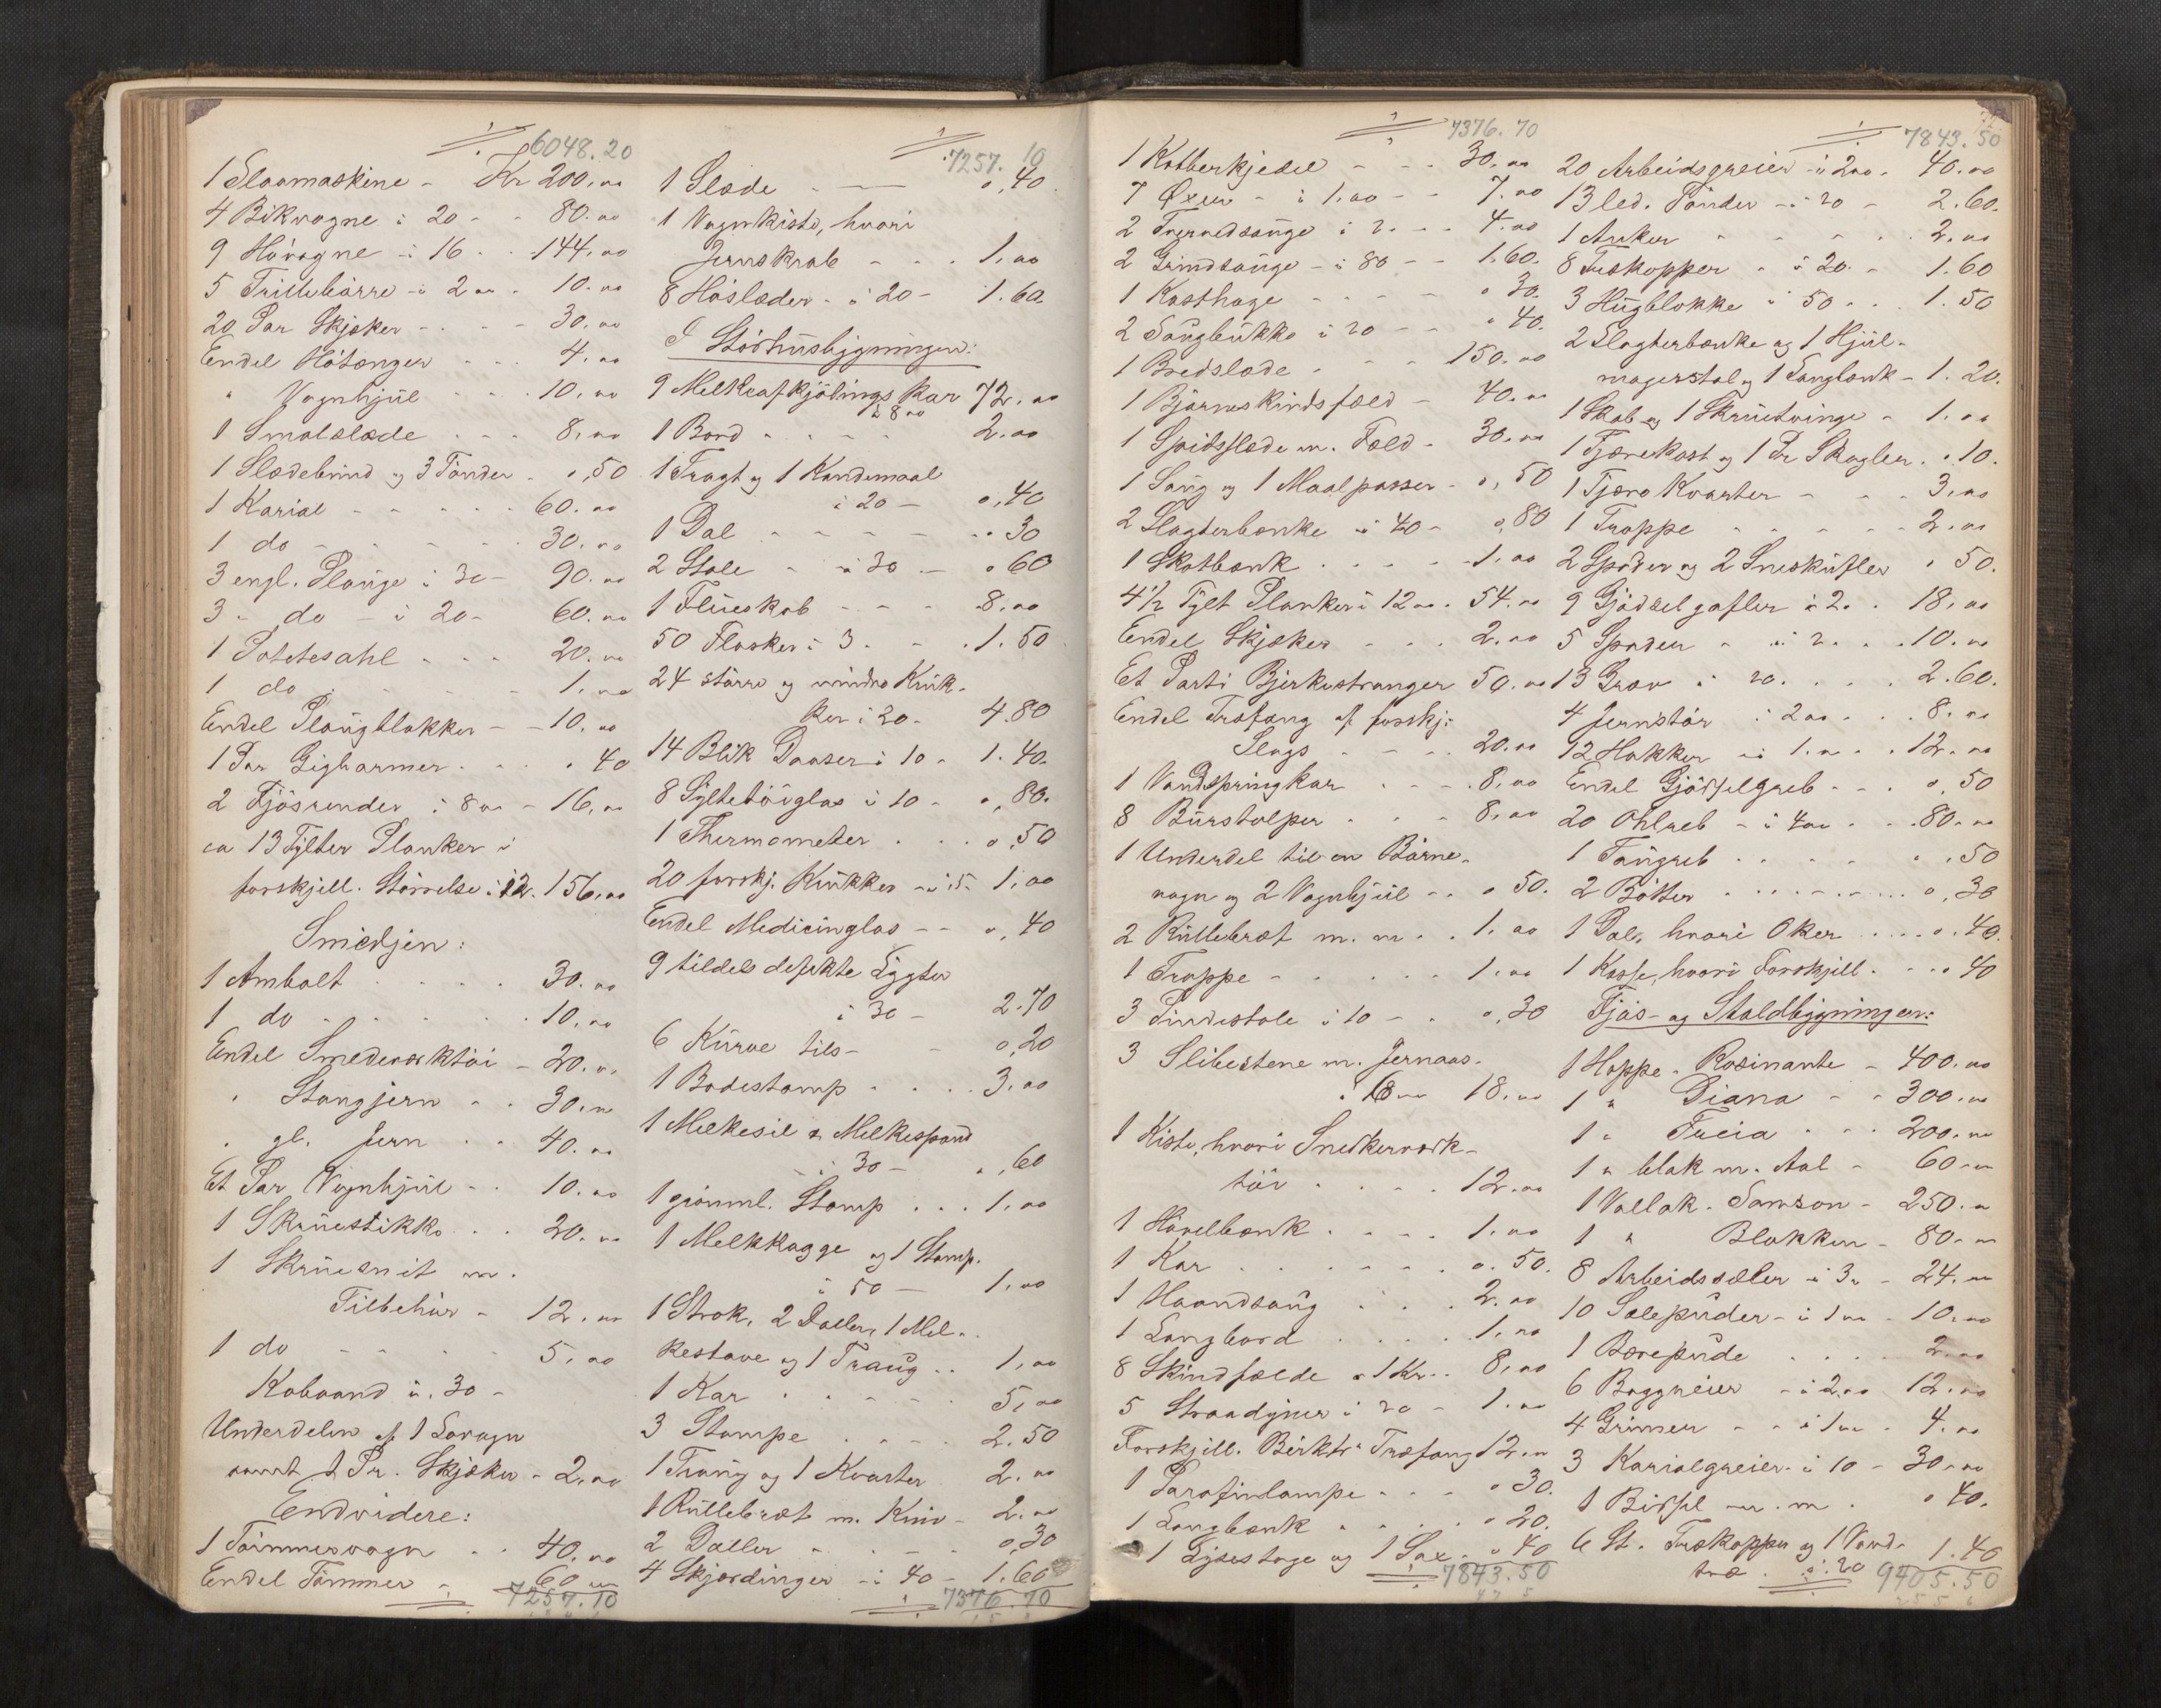 6048.20
1 Slaamaskine - Kr 200.00
4 Bikvogne à 20 - - 80.00
9 Høvogne - à 16 - - 144.00
5 Trillebørre - à 2.00 - 10.00
20 Par Skjæker - - - 30.00
Endel Høtænger - - 4.00
" Vognhjul - - - 10.00
1 Smalslæde - - - 8.00
1 Slædebund og 3 Tønder - 0,50
1 Kariol - - - - - 60.00
1 do - - - - - 30.00
3 engl. Plouge à 30 - 90.00
3 - do - à 20 - 60.00
1 Potetesahl - - - 20.00
1 do - - - - 1.00
Endel Plougblokker - - 10.00
1 Par Gigharmer - - - " 40
2 Fjøsrender à 8.00 - 16.00
ca 13 Tylter Planker i
forskjell. Størrelse à 12. 156.00
Smedjen:
1 Ambolt - - - - 30.00
1 do - - - - - 10.00
Endel Smedeværktøi - 20.00
" Stangjern - - 30.00
" gl. Jern - - 40.00
Et Par Vognhjul - - 10.00
1 Skruestikke - - - 20.00
1 Skruesnit m.
Tilbehør - 12.00
1 do - - - - 5.00
Underdelen af 1
samt 1 Pr. Skjæker - 2.00
Endvidere:
1 Tømmervogn - - 40.00
Endel Tømmer - 60.00
7257.10
7257.10
1 Slæde - - 0,40
1 Vognkiste, hvori
Jernskrab - - - 1.00
8 Høslæder - à 20 - 1.60.
I Storhusbygningen:
9 Melkeafkjølingskar 72.00
à 8 00
1 Bord - - - - 2.00
1 Tragt og 1 Kandemaal
à 20 - 0,40
1 Dal - - - - - " 30
2 Stole - à 30 - " 60
1 Flueskab - - - 8.00
50 Flasker à 3 - - 1.50
24 større og mindre Kruk-
ker à 20 - 4.80
14 Blik Daaser à 10 - 1.40.
8 Syltetøiglas à 10 - 0,80.
1 Thermometer - - - 0,50
20 forskj. Krukker - à 5 - 1.00
Endel Medicinglas - - 0,40
9 tildels defekte Lygter
à 30 - 2.70
6 Kurve tils - - 0,20
1 Badestamp - - - 3.00
1 Melkesil & Melkespand
à 30 - 0,60
1 gammel. Stamp - - - 1.00
1 Melkkagge og 1 Stamp.
à 50 - 1.00
1 Strok, 2 Daller, 1 Mel-
kestave og 1 Traug - - 1.00
1 Kar - - - - - 5.00
3 Stampe - - - - 2.50
1 Traug og 1 Kvarter 2.00
1 Rullebræt m. Kniv - 2.00
2 Daller - - - - 0,30
4 Skjørdinger - à 40 - 1.60
7376.70
7376.70
1 Kobberkjedel - - - 30.00
7 Øxer - à 1.00 - - 7.00
2 Tvervedsauge à 2 - - 4.00
2 Grindsauge - à 80 - - 1.60.
1 Kasthage - - - - " 30.
2 Saugbukke à 20 - - " 40.
1 Bredslæde - - - 150.00
1 Bjørneskindsfæld - 40.00
1 Spidsslæde m. Fæld - 30.00
1 Saug og 1 Maalpasser - 0,50
2 Slagterbænke à 40 - 0,80
1 Skotbænk - - - - 1.00
4½ Tylt Planker à 12.00 . 54.00
Endel Skjæker - - - 2.00
Et Parti Bjerkestranger 50.00
Endel Træfang af forskj:
Slags - - - - 20.00
1 Vandspringkar - - - 8.00
8 Burstolper - - - 8.00
1 Underdel til en Barne-
vogn og 2 Vognhjul - - " 50.
2 Rullebræt m. m - - 1.00
1 Trappe - - - - - 1.00
3 Pindestole à 10 - - 0,30
3 Slibestene m. Jernaas -
à 6 00 18.00
1 Kiste, hvori Snedkerværk-
tøi - - - - 12.00
1 Høvelbænk - - - - 1.00
1 Kar - - - - - - 0.50.
1 Haandsaug - - - 2.00
1 Langbord - - - - 1.00
8 Skindfælde à 1 Kr. - 8.00
5 Straadyner à 20 - 1.00
Forskjill. Træfang 12.00
1 Parafinlampe - - - " 30.
1 Langbænk - - - " 20.
1 Lysestage og 1 Sax - " 40
7843.50
7843.50
20 Arbeidsgreier - à 2.00 - 40.00
13 led. Tønder - à 20 - 2.60.
1 Anker - - - - - 2.00
8 Træskopper - à 20 - 1.60
3 Hugblokke à 50 - - 1.50
2 Slagterbænke og 1 Hjul-
magerstol og 1 Langbænk - 1.20.
1 Skab og 1 Skruetvinge - 1.00
1 Tjærekost og 1 Pr Skagler - " 10.
1 Tjære Kvarter - - - 3.00
1 Trappe - - - - - 2.00
2 Spader og 2 Sneskufler " 50.
9 Gjødselgafler à 2 - 18.00
5 Spader - à 2 - - - 10.00
13 Grev à 20 - - - - 2.60.
4 Jernstør à 2.00 - - - 8.00
12 Hakker - à 1.00 - - 12.00
Endel Gjødselgreb - - - 0,50
20 Ohlreb - à 4.00 - - - 80.00
1 Taugreb - - - - - " 50
2 Bøtter - - - - - - - 0,30
1 Dal, hvori Oker - - - 0.40.
1 Kasse, hvori Forskjill. - - - " 40
Fjøs- og Staldbygningen:
1 Hoppe - Rosinante - 400.00
1 " Diana - - 300.00
1 " Freia - - - 200.00
1 " blak m. Aal - 60.00
1 Vallak. Samson - 250.00
1 " Blakken - 80.00
8 Arbeidssæler - à 3 - 24.00
10 Sælepuder - à 1.00 - 10.00
1 Bærepude - - - - 2.00
6 Baggreier - à 2.00 12.00
4 Grimer - - à 1.00 - 4.00
3 Kariolgreier - à 10 - 30.00
1 Bissel m. m - " 40.
6 St. Træskopper og 1 Vand-
træ - à 20 1.40
9405.50